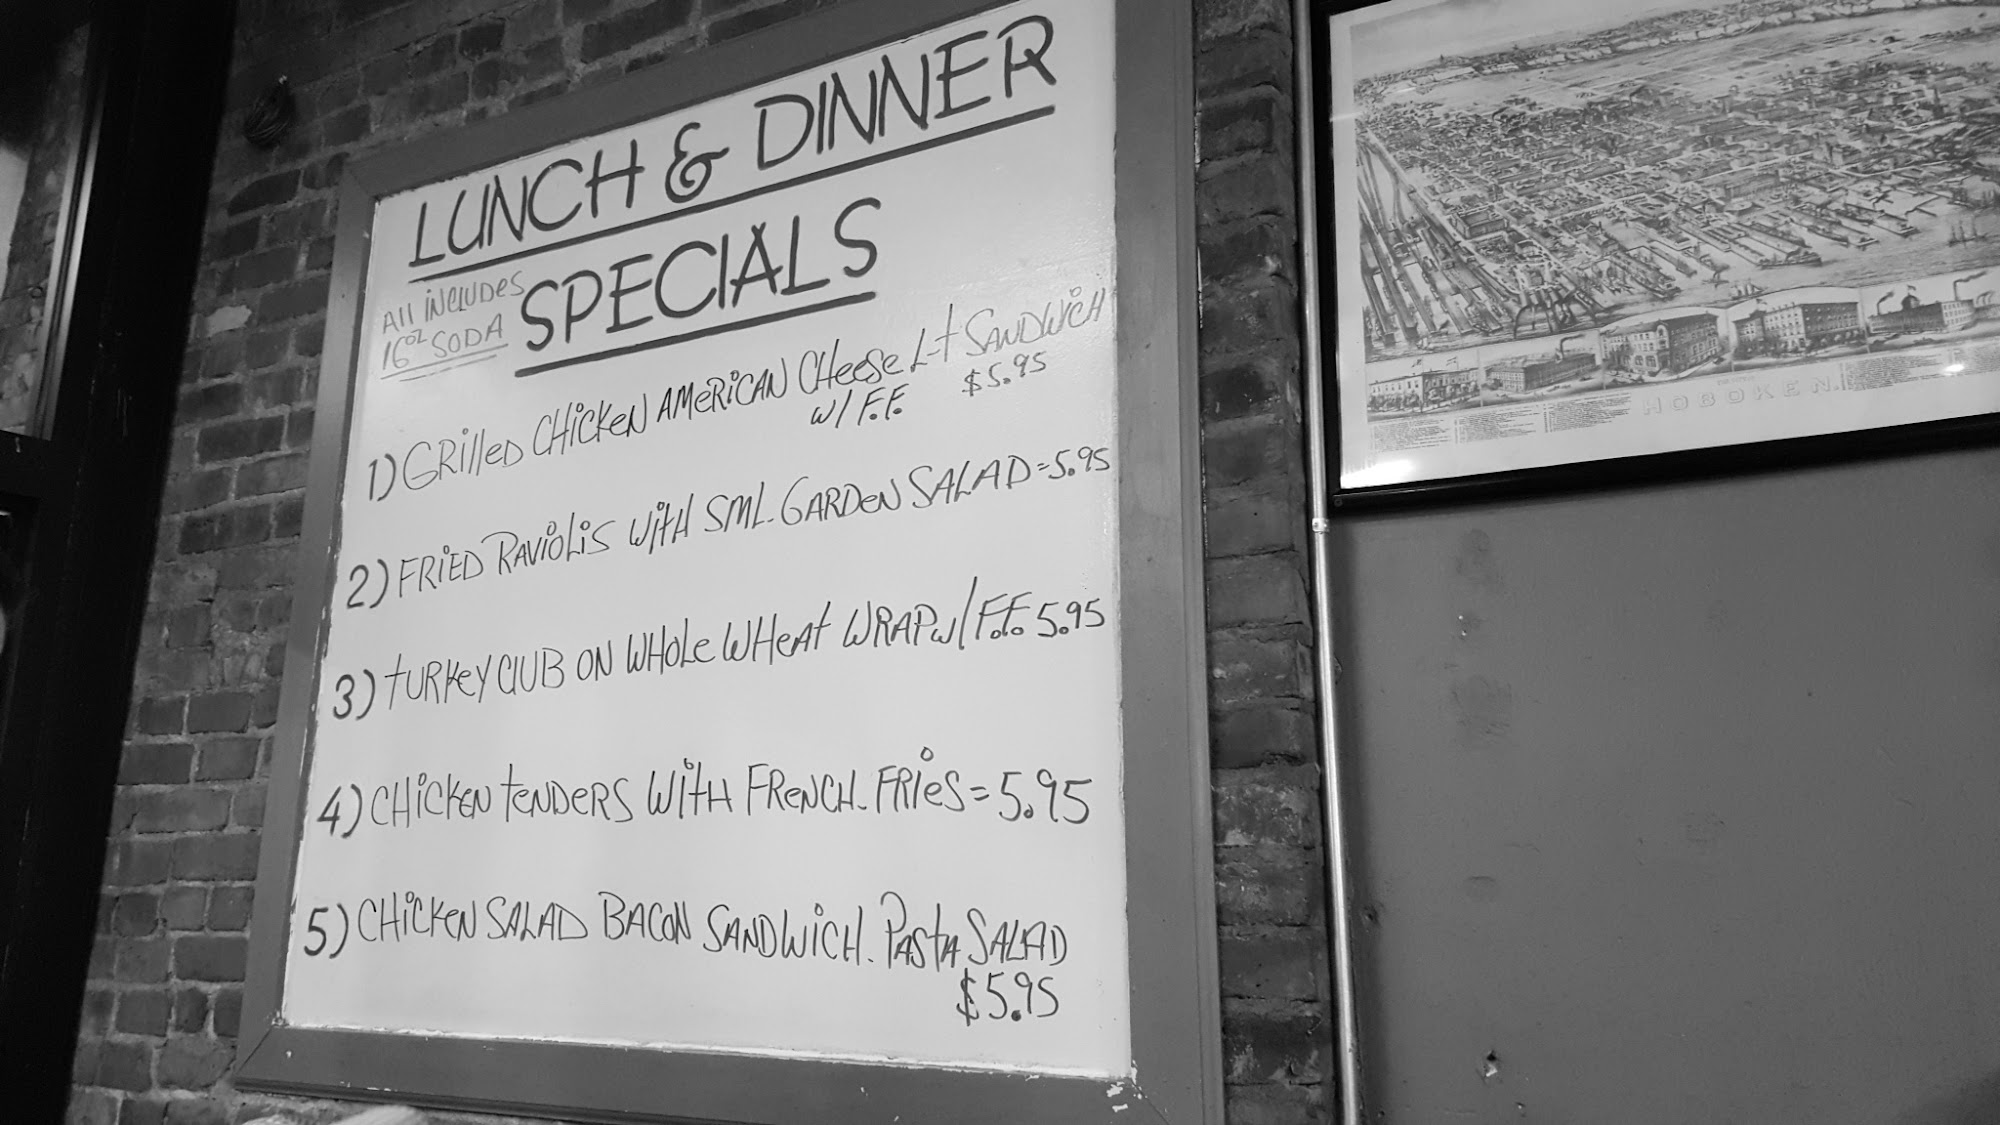 LUNCH & DINNER
SPECIALS
All iNCLUDes
16oz SODA
1) GRilleD CHiCKeN AMeRiCAN CHeese L-t SANDWiCH
w/ F.F. $5.95
2) FRiED RAViOLiS WitH SML. GARDeN SALAD = 5.95
3) tURKeY ClUB ON WHOLe WHeAt WRAP w/ F.F. 5.95
4) CHiCKeN teNDERS WitH FReNCH. FRies = 5.95
5) CHiCKeN SALAD BACON SANDWiCH. PAStA SALAD
$5.95
HOBOKEN.